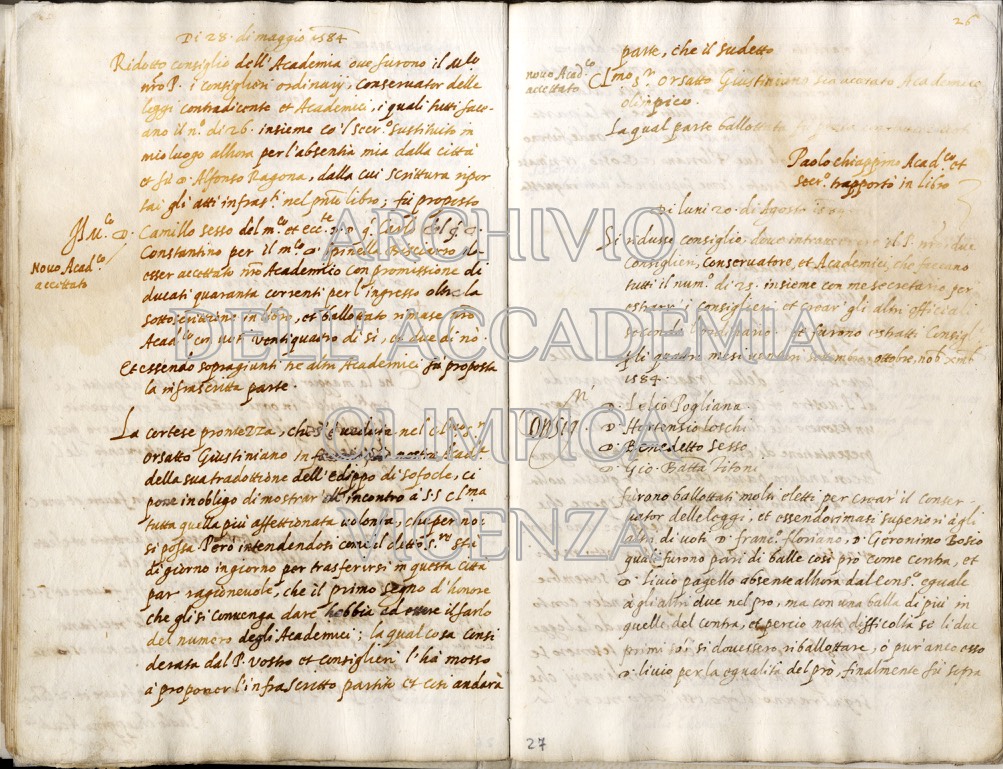 Di 28. di maggio 1584
Ridotto consiglio dell'Academia oue furono il
nro P. i consiglieri ordinarij, conseruator delle
leggi contradicente et Academici, i quali tutti face-
ano il n.° di 26. insieme co'l Secr.° sustituito in
mio luogo alhora per l'absentia mia dalla città
et fù D. Alfonso Ragona, dalla cui scrittura ripor
tai gli atti infras.ti nel libro; fù proposto
D. Camillo Sesso del m.co et ecc.te
Constantino per il m.co D. Spinella
Nouo Acad.co
accettato
esser accettato nro Academico con promissione di
ducati quaranta correnti per l'ingresso oltre la
sottoscrittione in libro, et ballottato rimase
Acad.co con uoti uentiquatro di si, et due di nò.
Et essendo sopragiunti tre altri Academici fù proposta
la infrascritta parte.
La cortese prontezza, che s'è ueduta nel cl.mo s.r
Orsatto Giustiniano in
della sua tradottione dell'edippo di Sofocle, ci
pone in obligo di mostrar all'incontro à S.S. Cl.ma
tutta quella più affettionata uolontà, che per noi
si possa. Però intendendosi come il detto S.or stà
di giorno in giorno per trasferirsi in questa città
par ragioneuole, che il primo segno d'honore
che gli si conuenga dare, hebbia ad essere il farlo
del numero degli Academici; la qual cosa consi
derata dal P. uostro et Consiglieri l'hà mosso
à proponer l'infrascritto partito et cosi andarà
26
parte, che il sudetto
nouo Acad.co
accettato
Cl.mo S.r Orsatto Giustiniano sia accettato Academico
olimpico.
La qual parte ballottata fù presa
Paolo chiappino Acad.co et
Secr.° rapportò in libro
Di luni 20. di Agosto 1584
Si ridusse consiglio, doue intrauennero il S. nro, i due
Consiglieri, Conseruatore, et Academici, che faceano
tutti il num.° di 25. insieme con me secretario per
estraher i consiglieri et crear gli altri officiali
secondo l'ordinario. et furono estratti Consigl.ri
per quatro mesi uenturi settembre, ottobre, nob. xmb.
1584.
Consig.ri
D. Lelio Pogliana
D. Hortensio Loschi
D. Benedetto Sesso
D. Gio. Batta Titoni
furono ballottati molti eletti per crear il Conser-
uator delle leggi, et essendo rimasti superiori à gli
altri di uoti D. franc.° floriano, D. Geronimo Bosio
quali furono pari di balle cosi prò come contra, et
D. liuio pagello absente alhora dal Cons.° eguale
à gli altri due nel prò, ma con una balla di più in
quelle del contra, et perciò nata difficoltà se li due
primi soli si douessero riballottare, ò pur anco esso
D. liuio per la egualità del prò, finalmente fù sopra
27
ARCHIVIO
DELL'ACCADEMIA
OLIMPICA
VICENZA